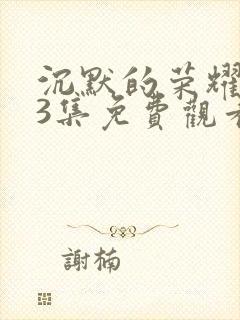 沉默的荣耀
3集免費觀看
謝楠